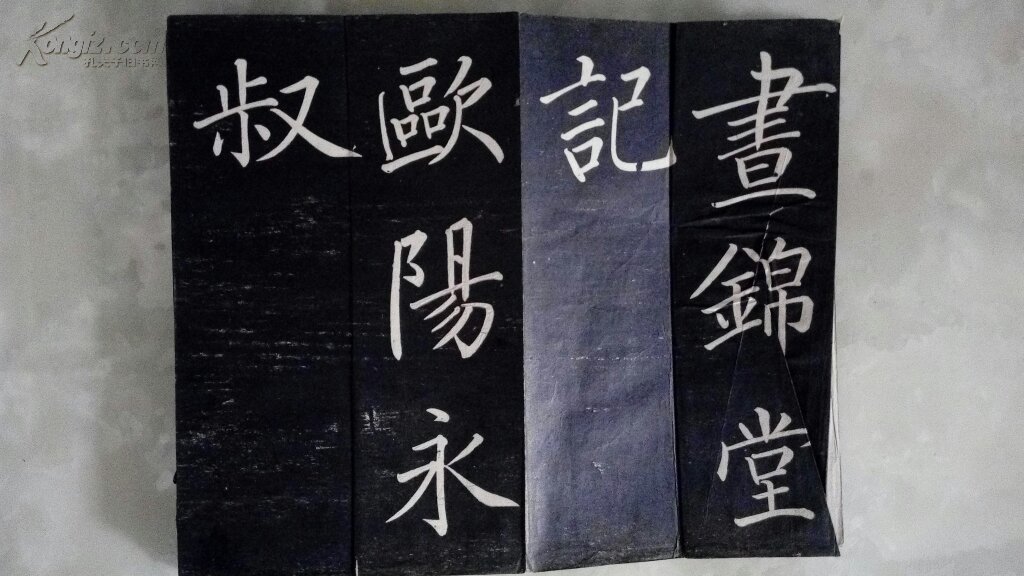 晝錦堂
記
歐陽永
叔
Kongfz.com
孔夫子旧书网